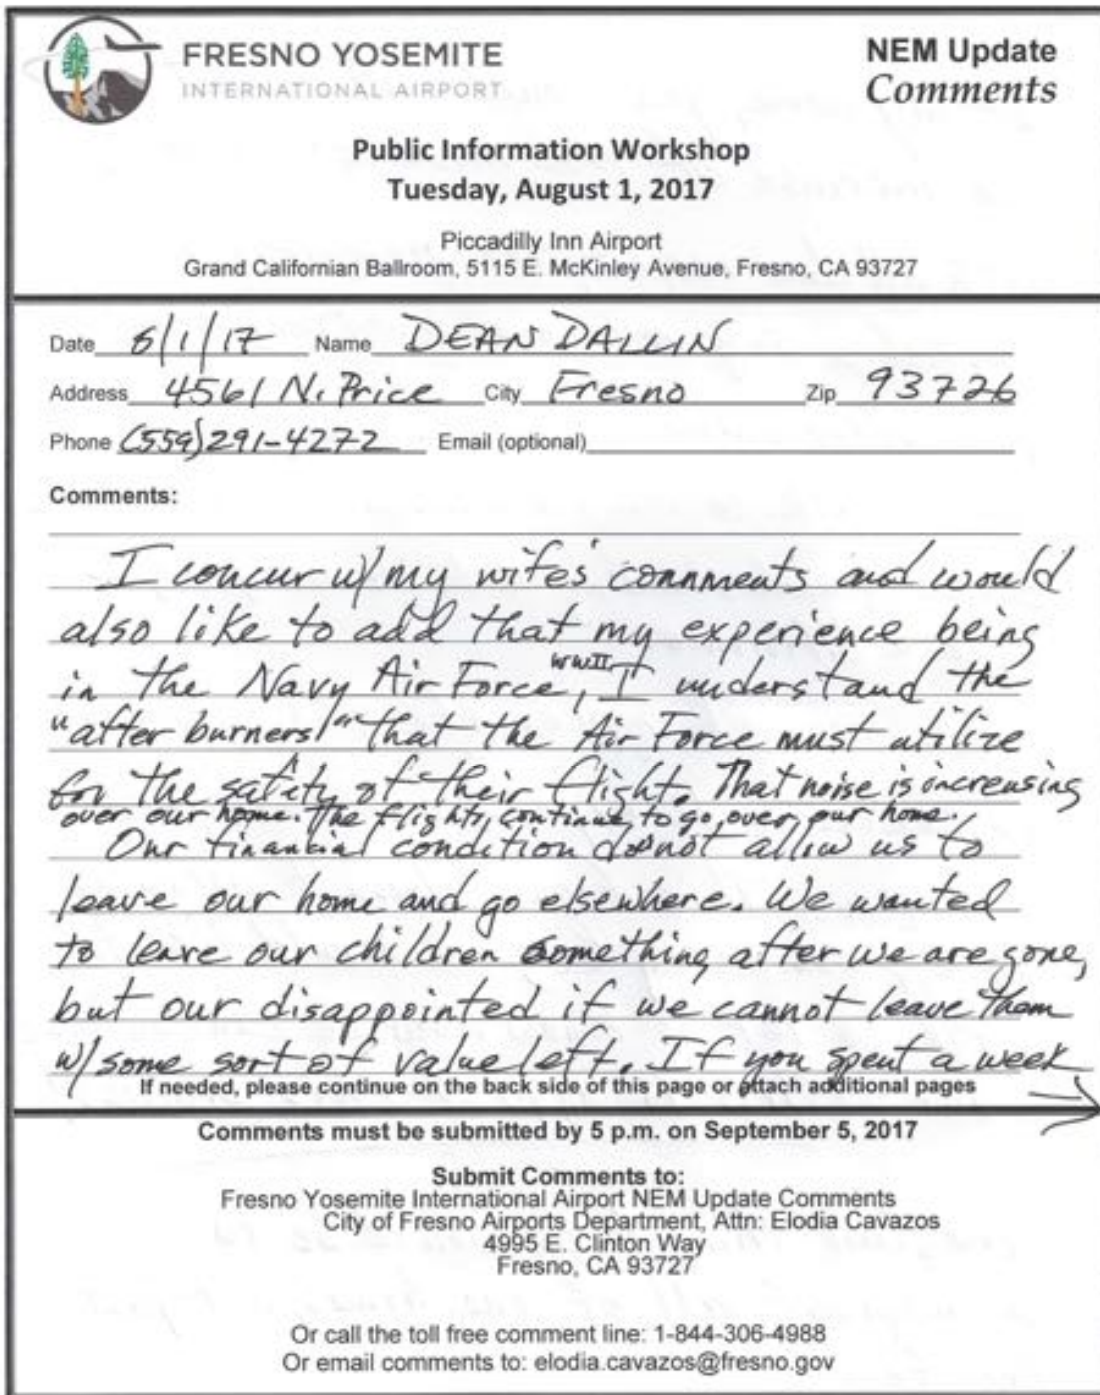 FRESNO YOSEMITE
INTERNATIONAL AIRPORT
NEM Update
Comments
Public Information Workshop
Tuesday, August 1, 2017
Piccadilly Inn Airport
Grand Californian Ballroom, 5115 E. McKinley Avenue, Fresno, CA 93727
Date 8/1/17 Name DEAN DALLIN
Address 4561 N. Price City Fresno Zip 93726
Phone (559)291-4272 Email (optional)
Comments:
I concur w/ my wife's comments and would
also like to add that my experience being
in the Navy Air Force, WWII, I understand the
"after burners" that the Air Force must utilize
for the safety of their flight. That noise is increasing
over our home. The flights, continue to go over our home.
Our financial condition do not allow us to
leave our home and go elsewhere. We wanted
to leave our children something after we are gone,
but our disappointed if we cannot leave them
w/some sort of value left. If you spent a week
If needed, please continue on the back side of this page or attach additional pages
Comments must be submitted by 5 p.m. on September 5, 2017
Submit Comments to:
Fresno Yosemite International Airport NEM Update Comments
City of Fresno Airports Department, Attn: Elodia Cavazos
4995 E. Clinton Way
Fresno, CA 93727
Or call the toll free comment line: 1-844-306-4988
Or email comments to: elodia.cavazos@fresno.gov